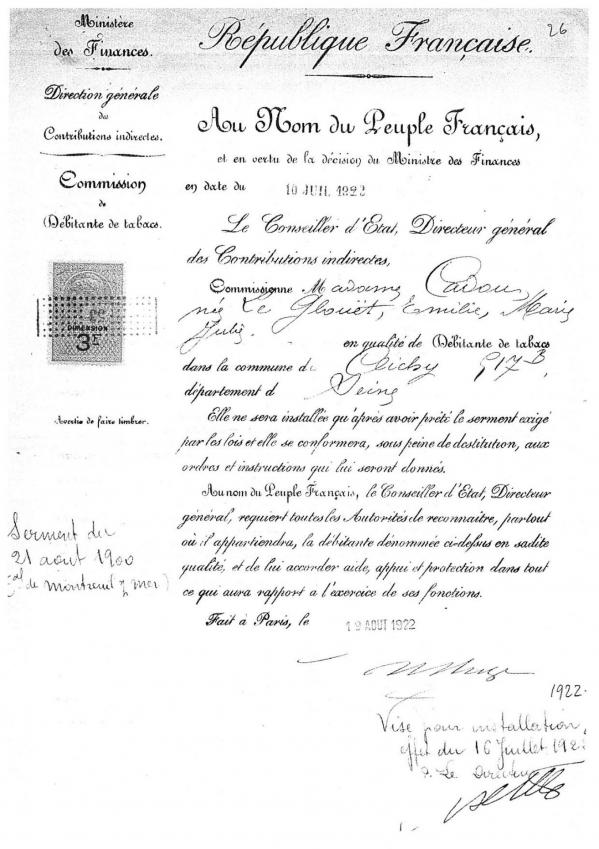 Ministère
des Finances.
Direction générale
des
Contributions indirectes.
Commission
de
Débitante de tabacs.
DIMENSION
3F
Avertie de faire timbrer.
Serment du
21 août 1900
de Montreuil s/ mer)
26
République Française.
Au Nom du Peuple Français,
et en vertu de la décision du Ministre des Finances
en date du 10 JUIL 1922
Le Conseiller d'Etat, Directeur général
des Contributions indirectes,
Commissionne Madame Cadou
née Le Glouët, Emilie, Marie
Julie. en qualité de Débitante de tabacs
dans la commune de Clichy 917 B
département d Seine
Elle ne sera installée qu'après avoir prêté le serment exigé
par les lois et elle se conformera, sous peine de destitution, aux
ordres et instructions qui lui seront donnés.
Au nom du Peuple Français, le Conseiller d'Etat, Directeur
général, requiert toutes les Autorités de reconnaître, partout
où il appartiendra, la débitante dénommée ci-dessus en sadite
qualité, et de lui accorder aide, appui et protection dans tout
ce qui aura rapport à l'exercice de ses fonctions.
Fait à Paris, le 12 AOUT 1922
1922.
Visé pour installation,
effet du 16 Juillet 192
P. Le Directeur